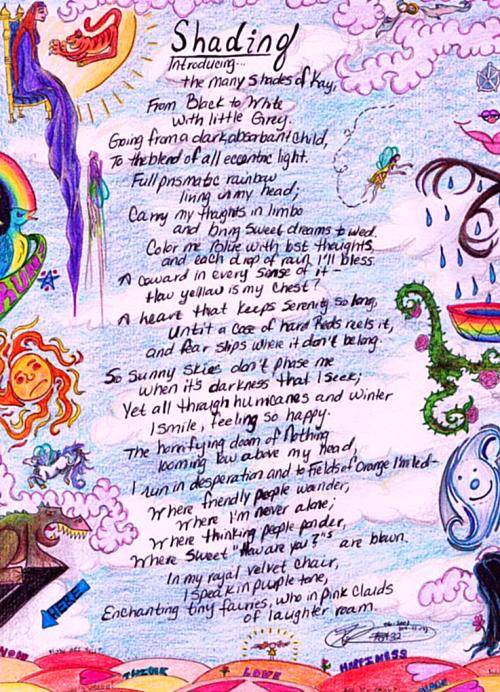 Shading
Introducing...
the many shades of Kay,
From Black to White
with little Grey.
Going from a dark, absorbant child,
To the blend of all eccentric light.
Full prismatic rainbow
living in my head;
Carry my thoughts in limbo
and bring sweet dreams to wed.
Color me Blue with lost thoughts,
and each drop of rain I'll bless.
A coward in every sense of it-
How yellow is my chest?
A heart that keeps serenity so long,
Until a case of hard Reds reels it,
and fear slips where it don't belong.
So sunny skies don't phase me
when it's darkness that I seek;
Yet all through hurricanes and winter
I smile, feeling so happy.
The horrifying doom of Nothing
looming low above my head,
I run in desperation and to fields of Orange I'm led-
Where friendly people wander,
Where I'm never alone;
Where thinking people ponder,
Where sweet "How are you?"s are blown.
In my royal velvet chair,
I speak in purple tone,
Enchanting tiny fairies, who in pink clouds
of laughter roam.
HERE
THINK
LOVE
HAPPINESS